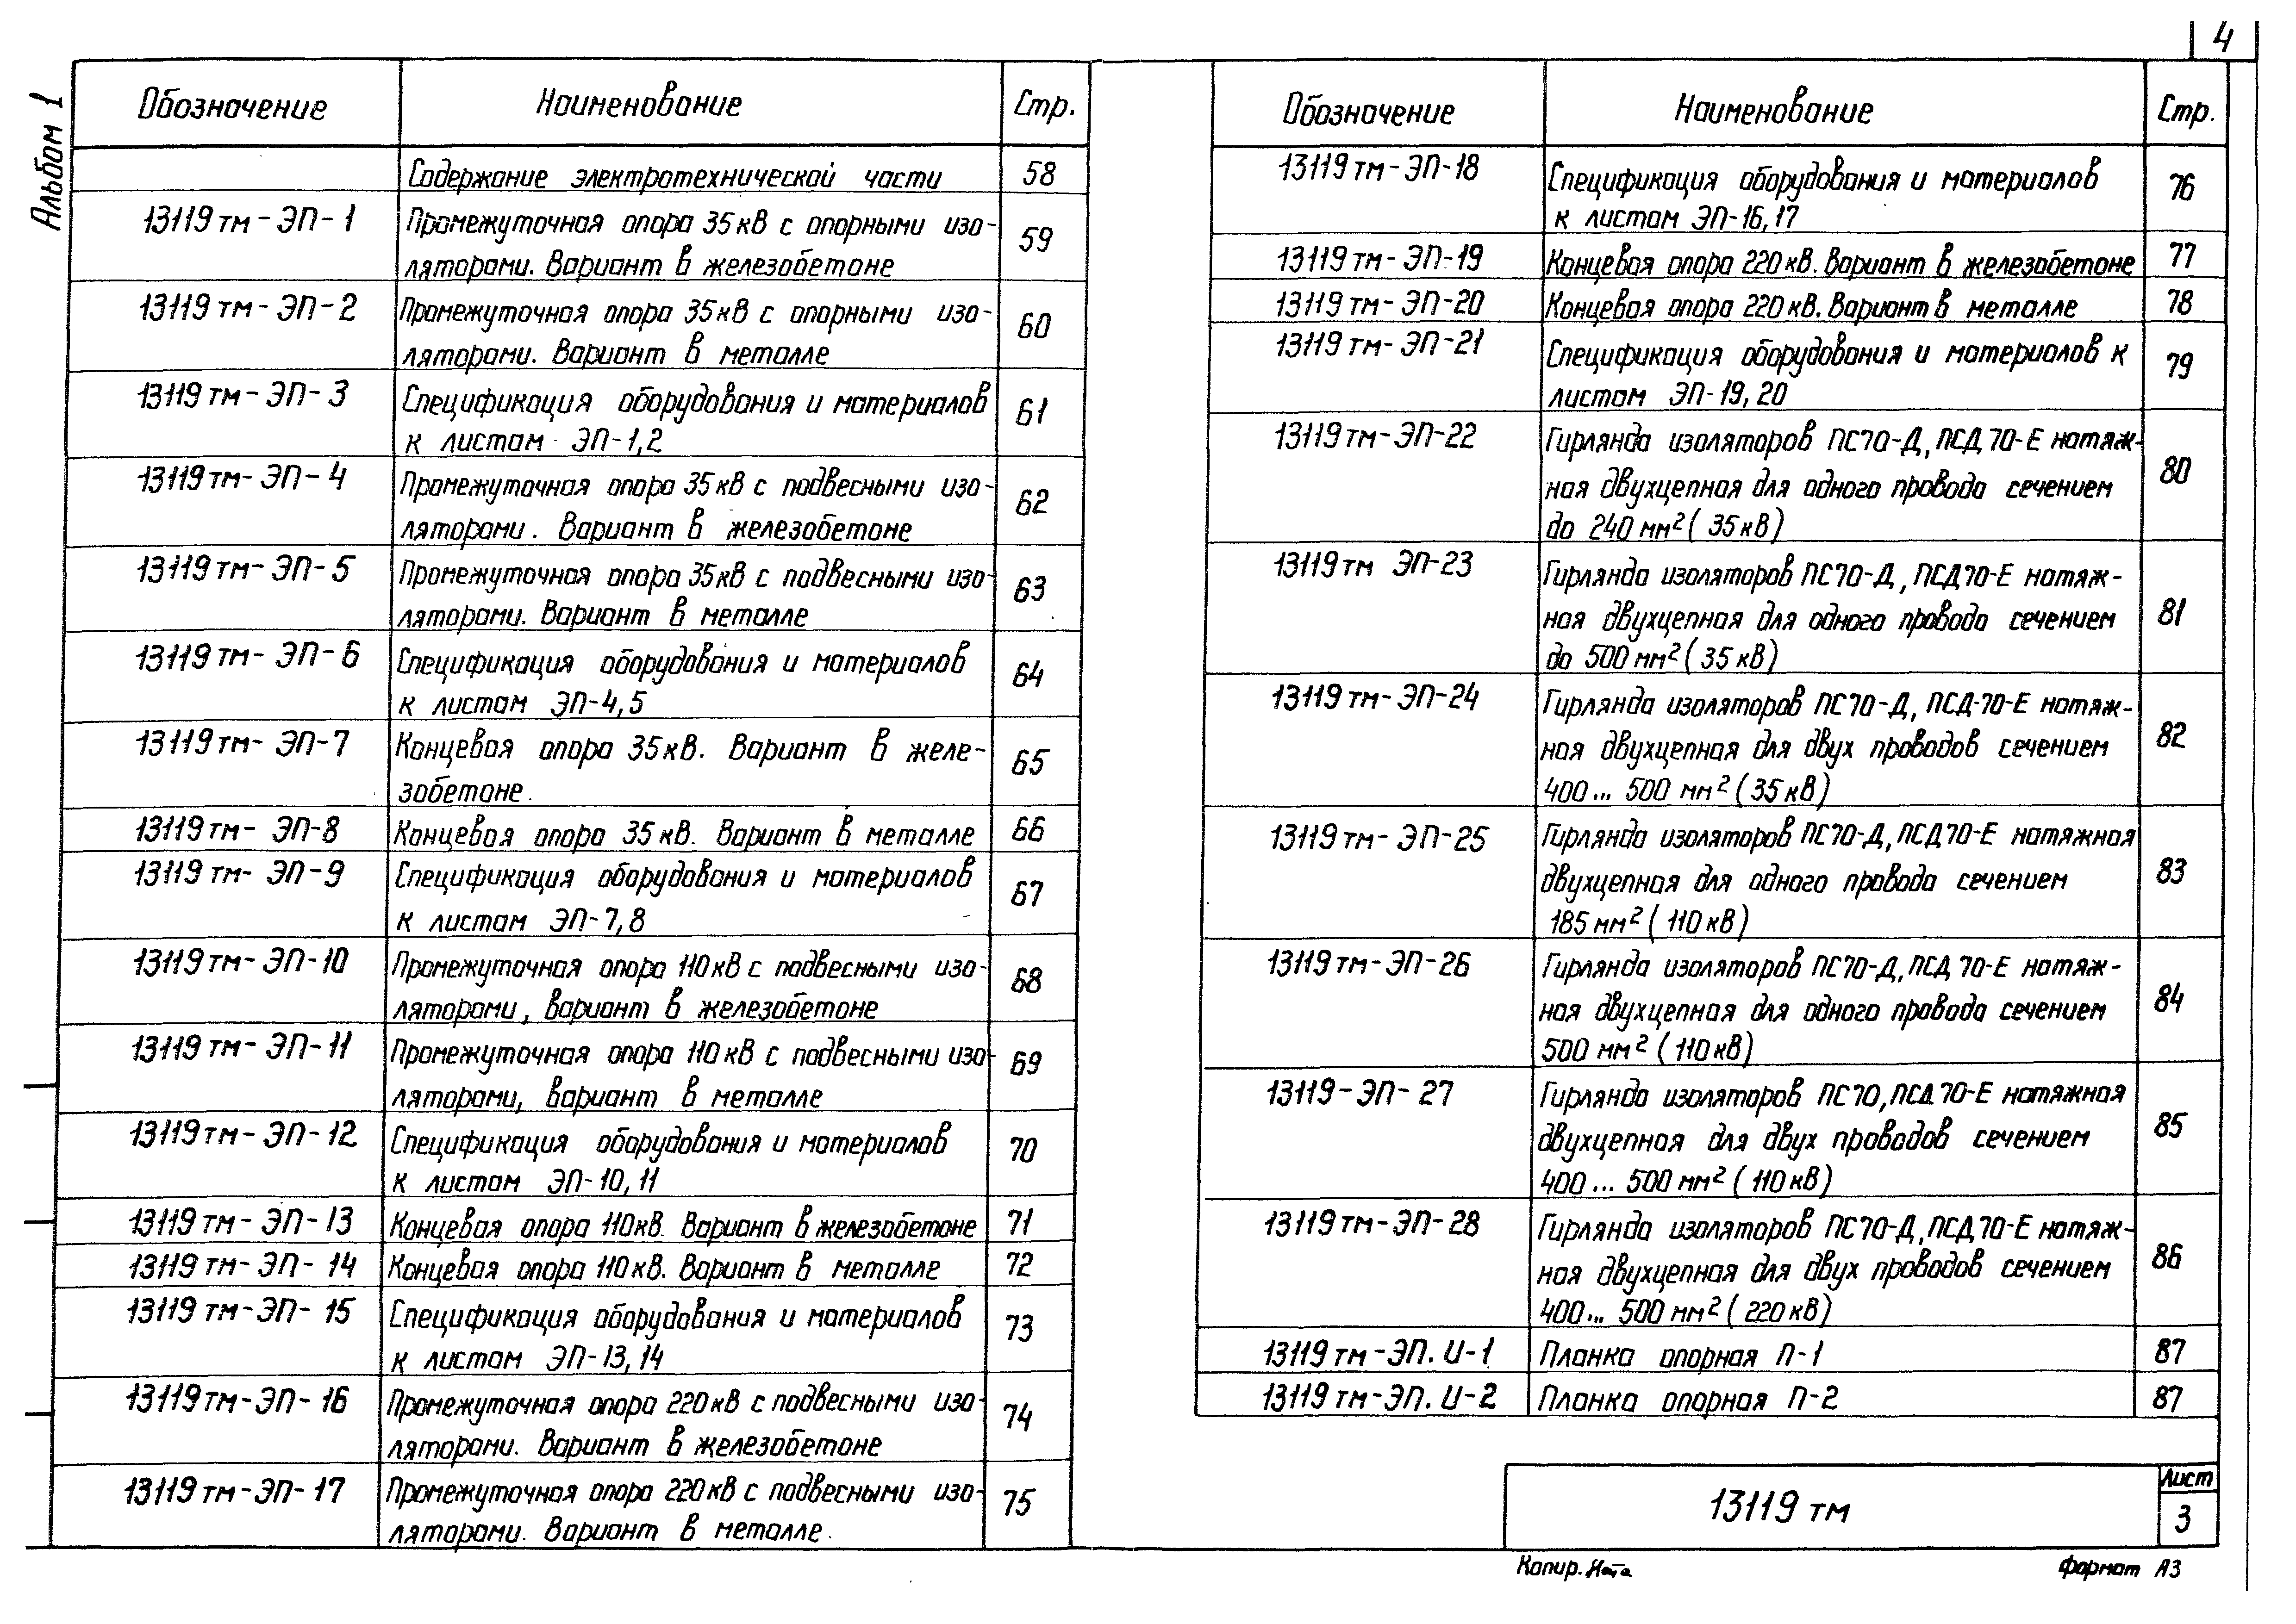 4
Альбом 1
Обозначение Наименование Стр.
Содержание электротехнической части 58
13119 тм-ЭП-1 Промежуточная опора 35кВ с опорными изо- 59
ляторами. Вариант в железобетоне
13119 тм-ЭП-2 Промежуточная опора 35кВ с опорными изо- 60
ляторами. Вариант в металле
13119 тм-ЭП-3 Спецификация оборудования и материалов 61
к листам ЭП-1,2
13119 тм-ЭП-4 Промежуточная опора 35кВ с подвесными изо- 62
ляторами. Вариант в железобетоне
13119 тм-ЭП-5 Промежуточная опора 35кВ с подвесными изо- 63
ляторами. Вариант в металле
13119 тм-ЭП-6 Спецификация оборудования и материалов 64
к листам ЭП-4,5
13119 тм-ЭП-7 Концевая опора 35кВ. Вариант в желе- 65
зобетоне.
13119 тм-ЭП-8 Концевая опора 35кВ. Вариант в металле 66
13119 тм-ЭП-9 Спецификация оборудования и материалов 67
к листам ЭП-7,8
13119 тм-ЭП-10 Промежуточная опора 110кВ с подвесными изо- 68
ляторами, вариант в железобетоне
13119 тм-ЭП-11 Промежуточная опора 110кВ с подвесными изо- 69
ляторами, вариант в металле
13119 тм-ЭП-12 Спецификация оборудования и материалов 70
к листам ЭП-10,11
13119 тм-ЭП-13 Концевая опора 110кВ. Вариант в железобетоне 71
13119 тм-ЭП-14 Концевая опора 110кВ. Вариант в металле 72
13119 тм-ЭП-15 Спецификация оборудования и материалов 73
к листам ЭП-13,14
13119 тм-ЭП-16 Промежуточная опора 220кВ с подвесными изо- 74
ляторами. Вариант в железобетоне
13119 тм-ЭП-17 Промежуточная опора 220кВ с подвесными изо- 75
ляторами. Вариант в металле.
Обозначение Наименование Стр.
13119 тм-ЭП-18 Спецификация оборудования и материалов 76
к листам ЭП-16,17
13119 тм-ЭП-19 Концевая опора 220кВ. Вариант в железобетоне 77
13119 тм-ЭП-20 Концевая опора 220кВ. Вариант в металле 78
13119 тм-ЭП-21 Спецификация оборудования и материалов к 79
листам ЭП-19,20
13119 тм-ЭП-22 Гирлянда изоляторов ПС70-Д, ПСД70-Е натяж- 80
ная двухцепная для одного провода сечением
до 240 мм² (35кВ)
13119 тм ЭП-23 Гирлянда изоляторов ПС70-Д, ПСД70-Е натяж- 81
ная двухцепная для одного провода сечением
до 500 мм² (35кВ)
13119 тм-ЭП-24 Гирлянда изоляторов ПС70-Д, ПСД-70-Е натяж- 82
ная двухцепная для двух проводов сечением
400... 500 мм² (35кВ)
13119 тм-ЭП-25 Гирлянда изоляторов ПС70-Д, ПСД70-Е натяжная 83
двухцепная для одного провода сечением
185 мм² (110кВ)
13119 тм-ЭП-26 Гирлянда изоляторов ПС70-Д, ПСД70-Е натяж- 84
ная двухцепная для одного провода сечением
500 мм² (110кВ)
13119-ЭП-27 Гирлянда изоляторов ПС70, ПСД70-Е натяжная 85
двухцепная для двух проводов сечением
400... 500 мм² (110кВ)
13119 тм-ЭП-28 Гирлянда изоляторов ПС70-Д, ПСД70-Е натяж- 86
ная двухцепная для двух проводов сечением
400... 500 мм² (220кВ)
13119 тм-ЭП.И-1 Планка опорная П-1 87
13119 тм-ЭП.И-2 Планка опорная П-2 87
13119 тм
Лист
3
Копир. Ната
Формат А3